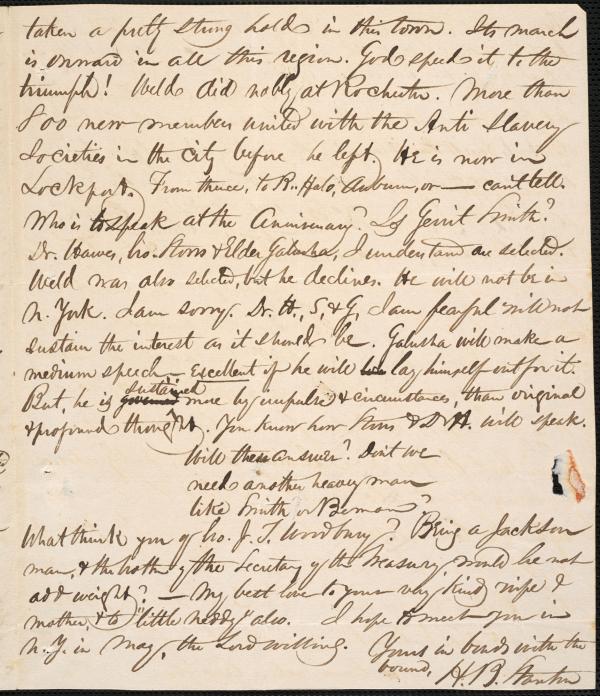 taken a pretty strong hold in this town. Its march
is onward in all this region. God speed it to the
triumph! Weld did nobly at Rochester. More than
800 new members united with the Anti Slavery
Societies in the city before he left. He is now in
Lockport. From thence, to Buffalo, Auburn, or — can't tell.
Who is to speak at the Anniversary? Is Gerrit Smith?
Dr. Hawes, bro. Storrs & Elder Galusha, I understand are selected.
Weld was also selected, but he declines. He will not be in
N. York. I am sorry. Dr. H., S, & G, I am fearful will not
sustain the interest as it should be. Galusha will make a
medium speech — Excellent if he will lay himself out for it.
But, he is governed sustained more by impulse & circumstances, than original
& profound thought. You know how Storrs & Dr H. will speak.
Will these answer? Don't we
need another heavy man
like Smith or Beman?
What think you of bro. J. T. Woodbury? Being a Jackson
man, & the brother of the Secretary of the Treasury would he not
add weight? — My best love to your very kind wife &
mother, & to "little neddy" also. I hope to meet you in
N.Y. in May, the Lord willing. Yours in bonds with the
bound, H. B. Stanton